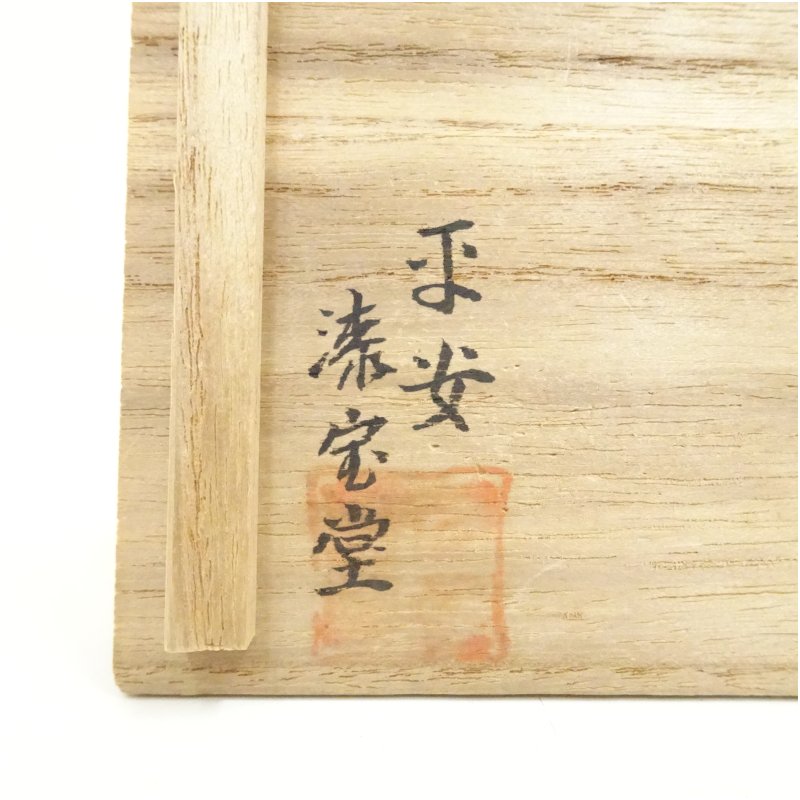 平安
漆宝堂